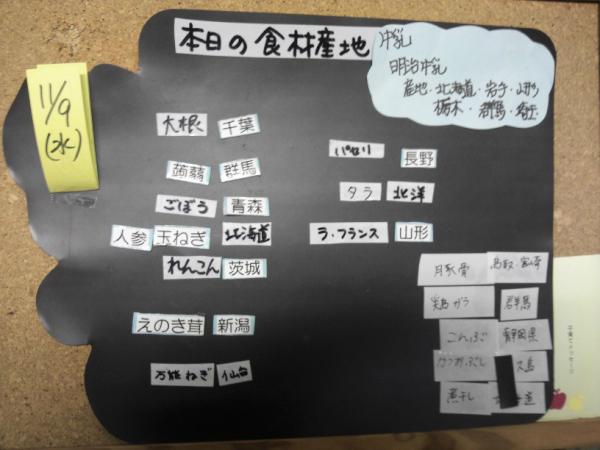 本日の食材産地
牛乳
明治牛乳
産地・北海道・岩手・山形
栃木・群馬・埼玉
11/9
(水)
大根 千葉
蒟蒻 群馬
ごぼう 青森
人参 玉ねぎ 北海道
れんこん 茨城
えのき茸 新潟
万能ねぎ 仙台
パセリ 長野
タラ 北洋
ラ・フランス 山形
豚骨 鳥取・宮崎
鶏ガラ 群馬
こんぶ 静岡県
かつおぶし
煮干し
子育てメッセージ